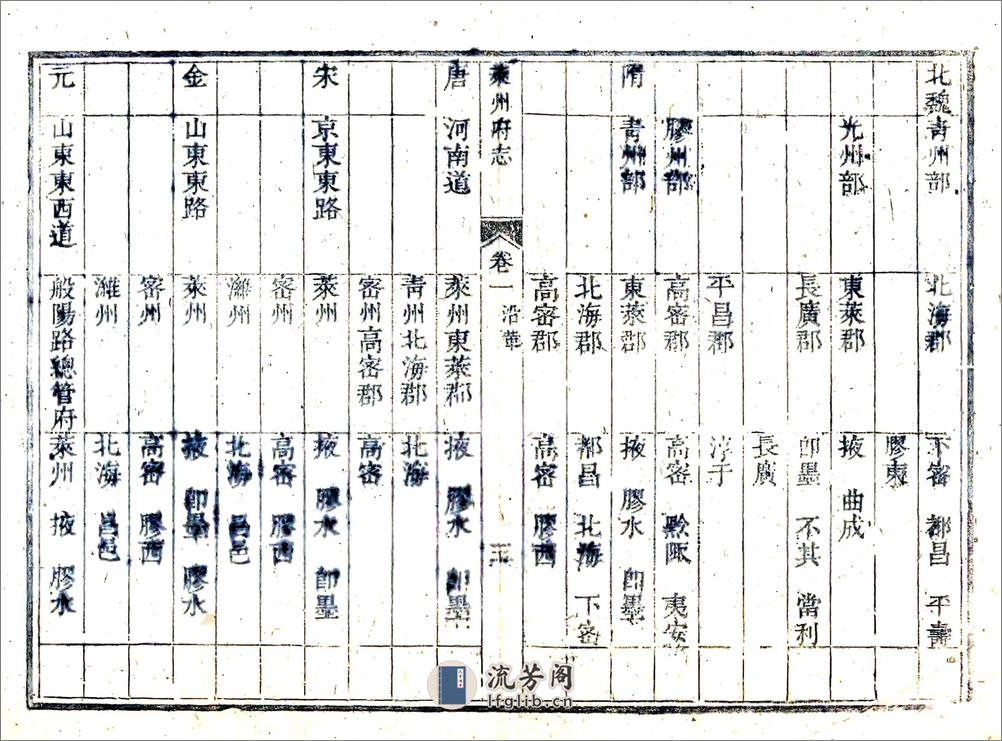 北魏 青州部 北海郡 下密 都昌 平壽
膠東
光州部 東萊郡 掖 曲成
長廣郡 卽墨 不其 當利
長廣
平昌郡 淳于
膠州部 高密郡 高密 黔陬 夷安
隋 青州部 東萊郡 掖 膠水 卽墨
北海郡 都昌 北海 下密
高密郡 高密 膠西
萊州府志 卷一 沿革
唐 河南道 萊州東萊郡 掖 膠水 卽墨
青州北海郡 北海
密州高密郡 高密
宋 京東東路 萊州 掖 膠水 卽墨
密州 高密 膠西
濰州 北海 昌邑
金 山東東路 萊州 掖 卽墨 膠水
密州 高密 膠西
濰州 北海 昌邑
元 山東東西道 般陽路總管府 萊州 掖 膠水
流芳阁
lfglib.cn